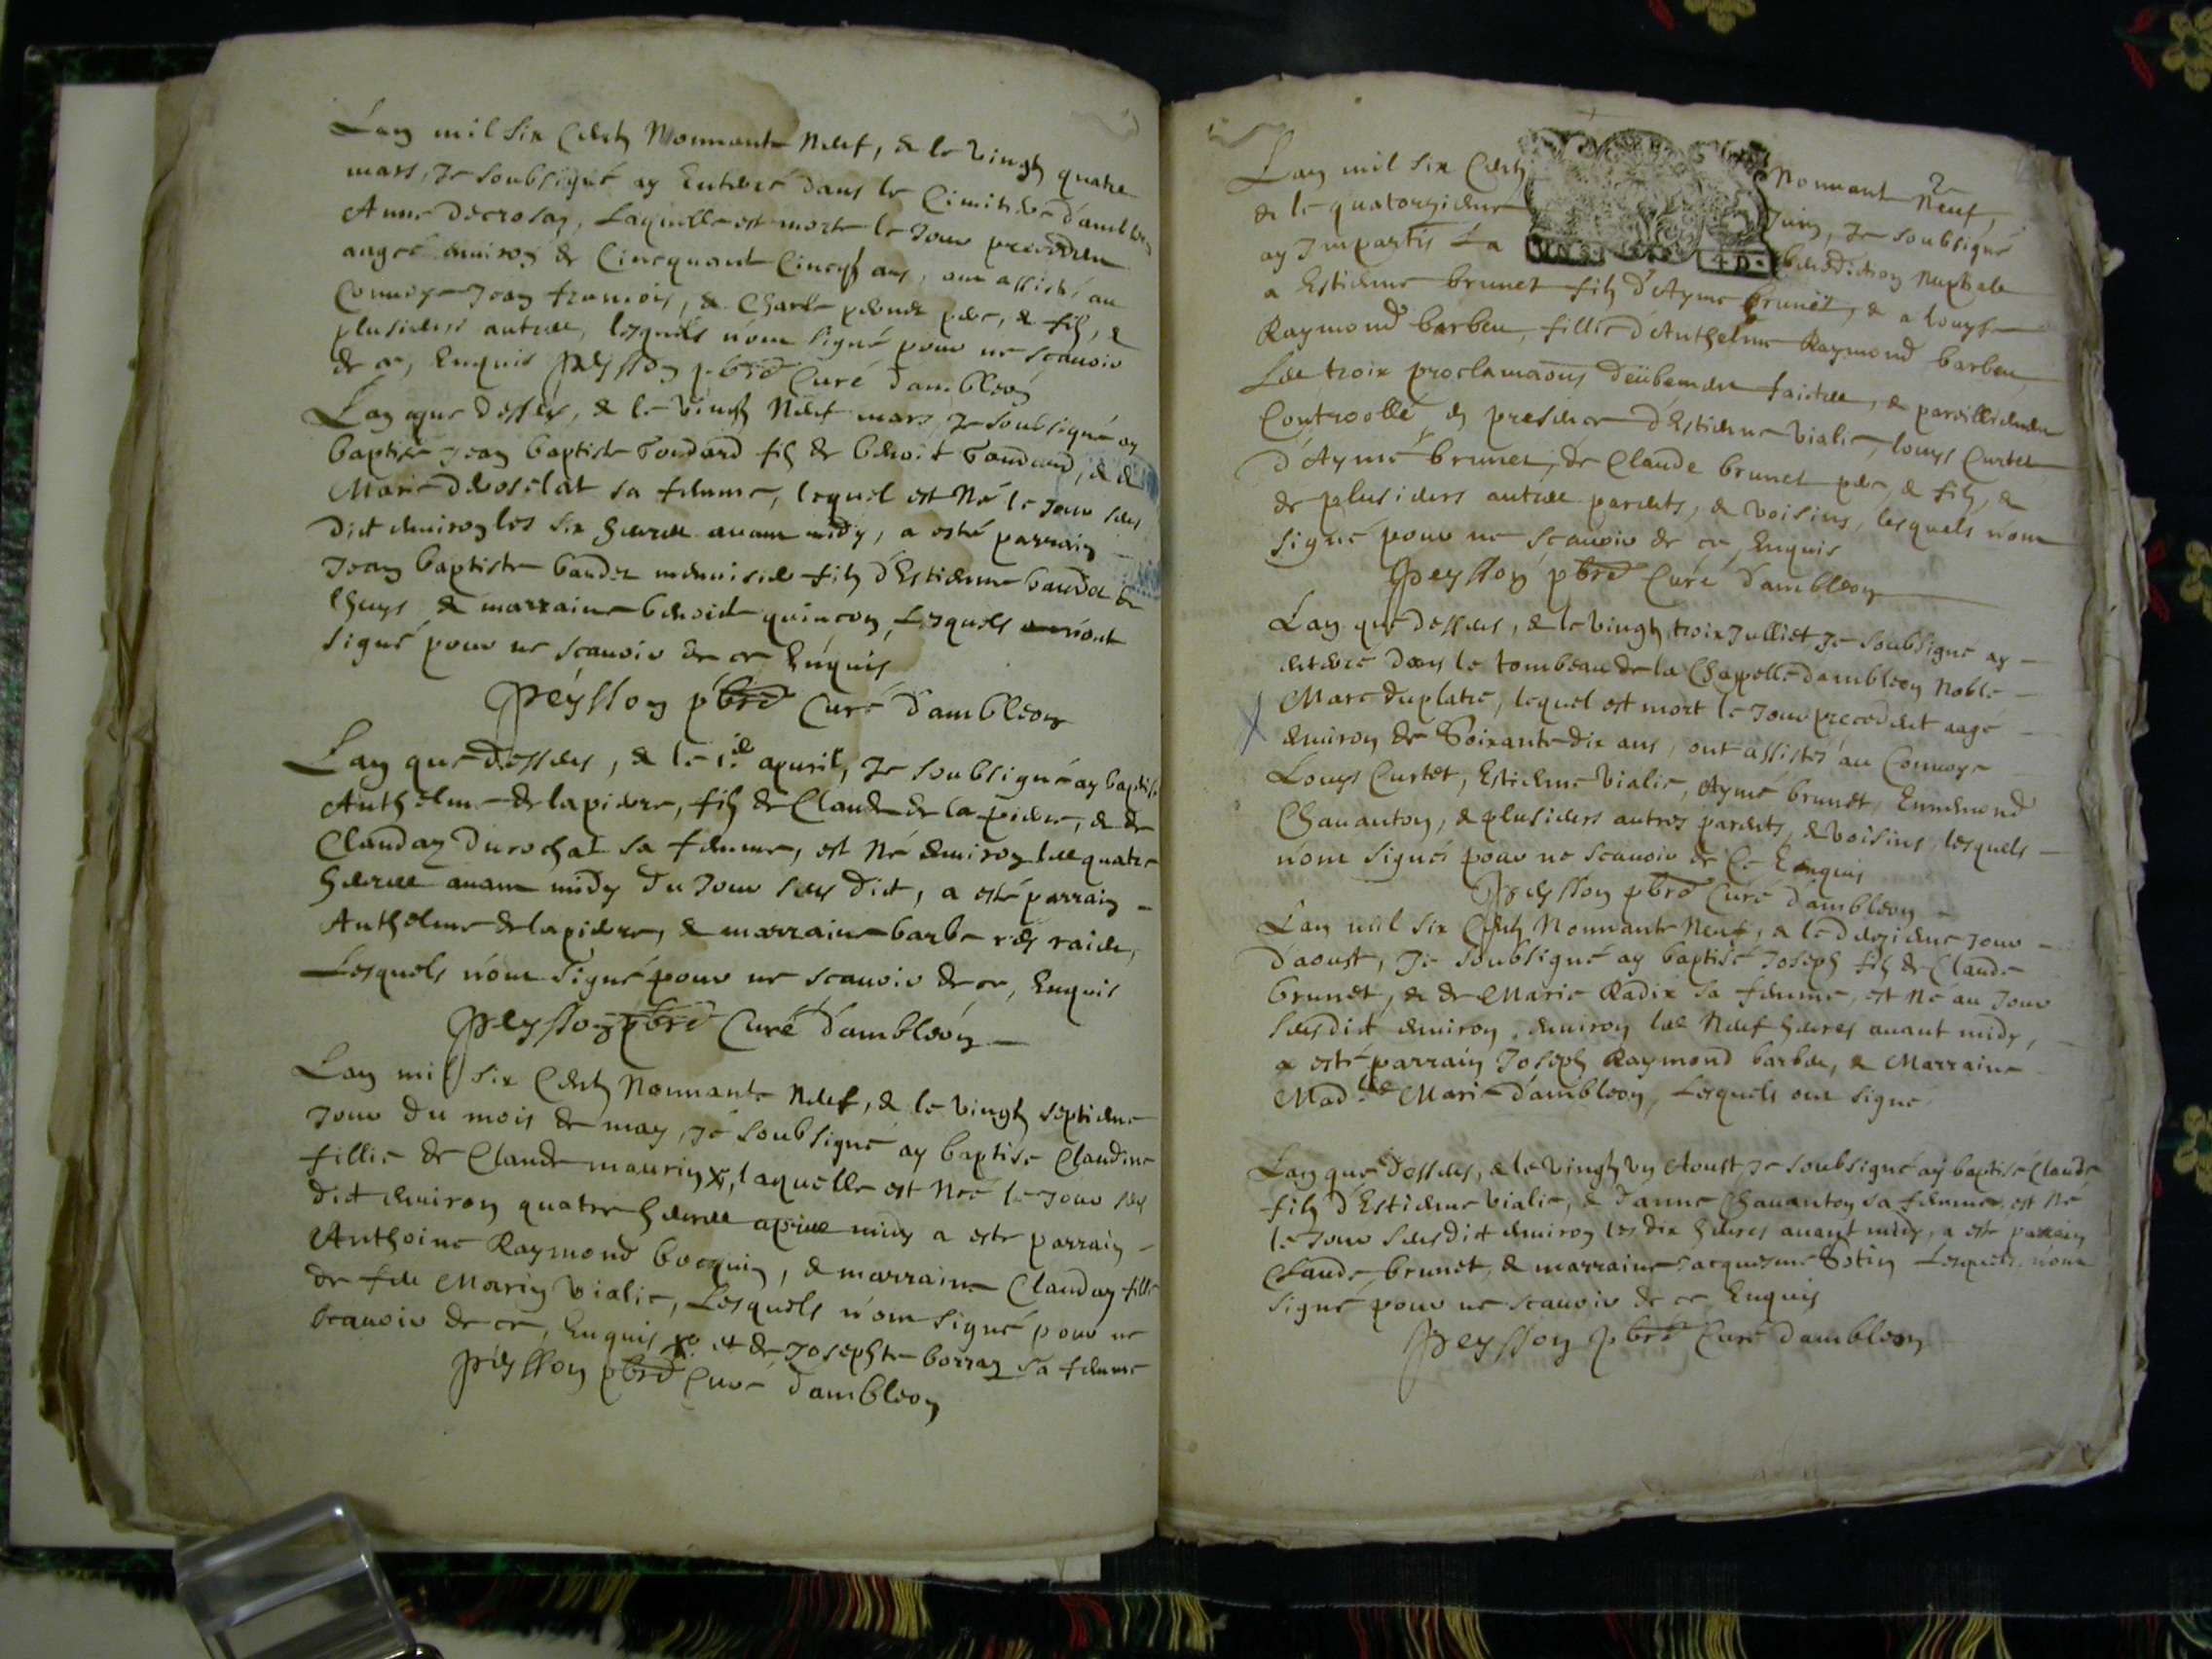 Lan mil six Cents Nonnante Neuf, & le vingt quatre
mars, Je soubsigné ay Enterré dans le Cimitiere d'ambleon
Anne decrosay, Laquelle est morte le Jour precedent
aagée enuiron de Cincquant Cincq ans, ont assisté au
Connoye Jean francois, & Charle pere, & fils, &
plusieurs autres, lesquels n'ont signé pour ne scauoir
de ce, Enquis Peysson pbre Curé d'ambleon
Lan que dessus, & le vingt Neuf mars Je soubsigné ay
baptisé Jean baptiste Goudard fils de benoit Goudard, & de
Marie sa femme, lequel est Né le Jour sus
dict enuiron les six heures auant midy, a esté parrain
Jean baptiste baudet menuisier fils d'Estienne baudet de
lhuys & marraine benoite quincon, Lesquels n'ont
signé pour ne scauoir de ce Enquis
Peysson pbre Curé d'ambleon
Lan que dessus, & le 1.er apuril, Je soubsigné ay baptisé
Anthelme de lapierre, fils de Claude de la pierre, & de
Clauday Durochat sa femme, est Né enuiron les quatre
heures auant midy du Jour sus dict, a esté parrain
Anthelme de lapierre, & marraine barbe rey raide,
Lesquels n'ont signé pour ne scauoir de ce, Enquis
Peysson pbre Curé d'ambleon
Lan mil six Cents Nonnante Neuf, & le vingt septieme
Jour du mois de may, Je soubsigné ay baptisé Claudine
fillie de Claude maurin x, laquelle est Née le Jour sus
dict enuiron quatre heures apres midy a esté parrain
Anthoine Raymond bocquin, & marraine Clauday fille
de feu Marin vialie, Lesquels n'ont signé pour ne
scauoir de ce, Enquis x et de Josephte borray sa femme
Peysson pbre Curé d'ambleon
2
Lan mil six Cents Nonnant Neuf,
& le quatorzieme Juin, Je soubsigné
ay Impartis La benediction Nuptiale
a Estienne brunet fils d'Ayme brunet, & a louyse
Raymond barbeu, fillie d'Anthelme Raymond barbeu
Les troix proclamaons deübement faictes, & pareillement
Controollé, en presence d'Estienne vialie, louys Curtet
d'Aymé brunet, de Claude brunet pere, & fils, &
de plusieurs autres parents, & voisins, lesquels n'ont
signé pour ne scauoir de ce Enquis
Peysson pbre Curé d'ambleon
Lan que dessus, & le vingt troix Julliet Je soubsigné ay
enterré dans le tombeau de la Chappelle d'ambleon Noble
Marc duplatre, lequel est mort le Jour precedent aagé
enuiron de Soixante dix ans, ont assistés au Connoye
Louys Curtet, Estienne vialie, Aymé brunet, Ennemond
Chauanton, & plusieurs autres parents, & voisins, lesquels
n'ont signés pour ne scauoir de Ce Enquis
Peysson pbre Curé d'ambleon
Lan mil six Cents Nonnante Neuf, & le deuzieme Jour
d'aoust, Je soubsigné ay baptisé Joseph fils de Claude
brunet, & de Marie Radix sa femme, est Né au Jour
susdict enuiron enuiron les Neuf heures auant midy,
a esté parrain Joseph Raymond barbeu, & Marraine
Mad.lle Marie d'ambleon, Lesquels ont signé
Lan que dessus, & le vingt vn Aoust Je soubsigné aÿ baptisé Claude
fils d'Estienne vialie, & d'anne Chauanton sa femme, est Né
le Jour susdict enuiron les dix heures auant midy, a esté parrain
Claude brunet, & marraine Jacquesme Sotin Lesquels n'ont
signé pour ne scauoir de ce Enquis
Peysson pbre Curé d'ambleon